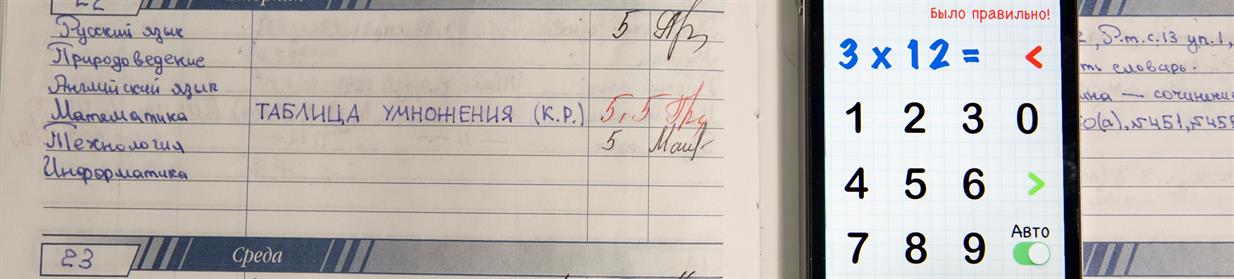 22
Русский язык 5
Природоведение
Английский язык
Математика ТАБЛИЦА УМНОЖЕНИЯ (К.Р.) 5, 5
Технология 5
Информатика
23 Среда
Было правильно!
3 x 12 = <
1 2 3 0
4 5 6 >
Авто
7 8 9
Р.т.с.13 уп.1,
словарь.
— сочинение
(а), №451, №455